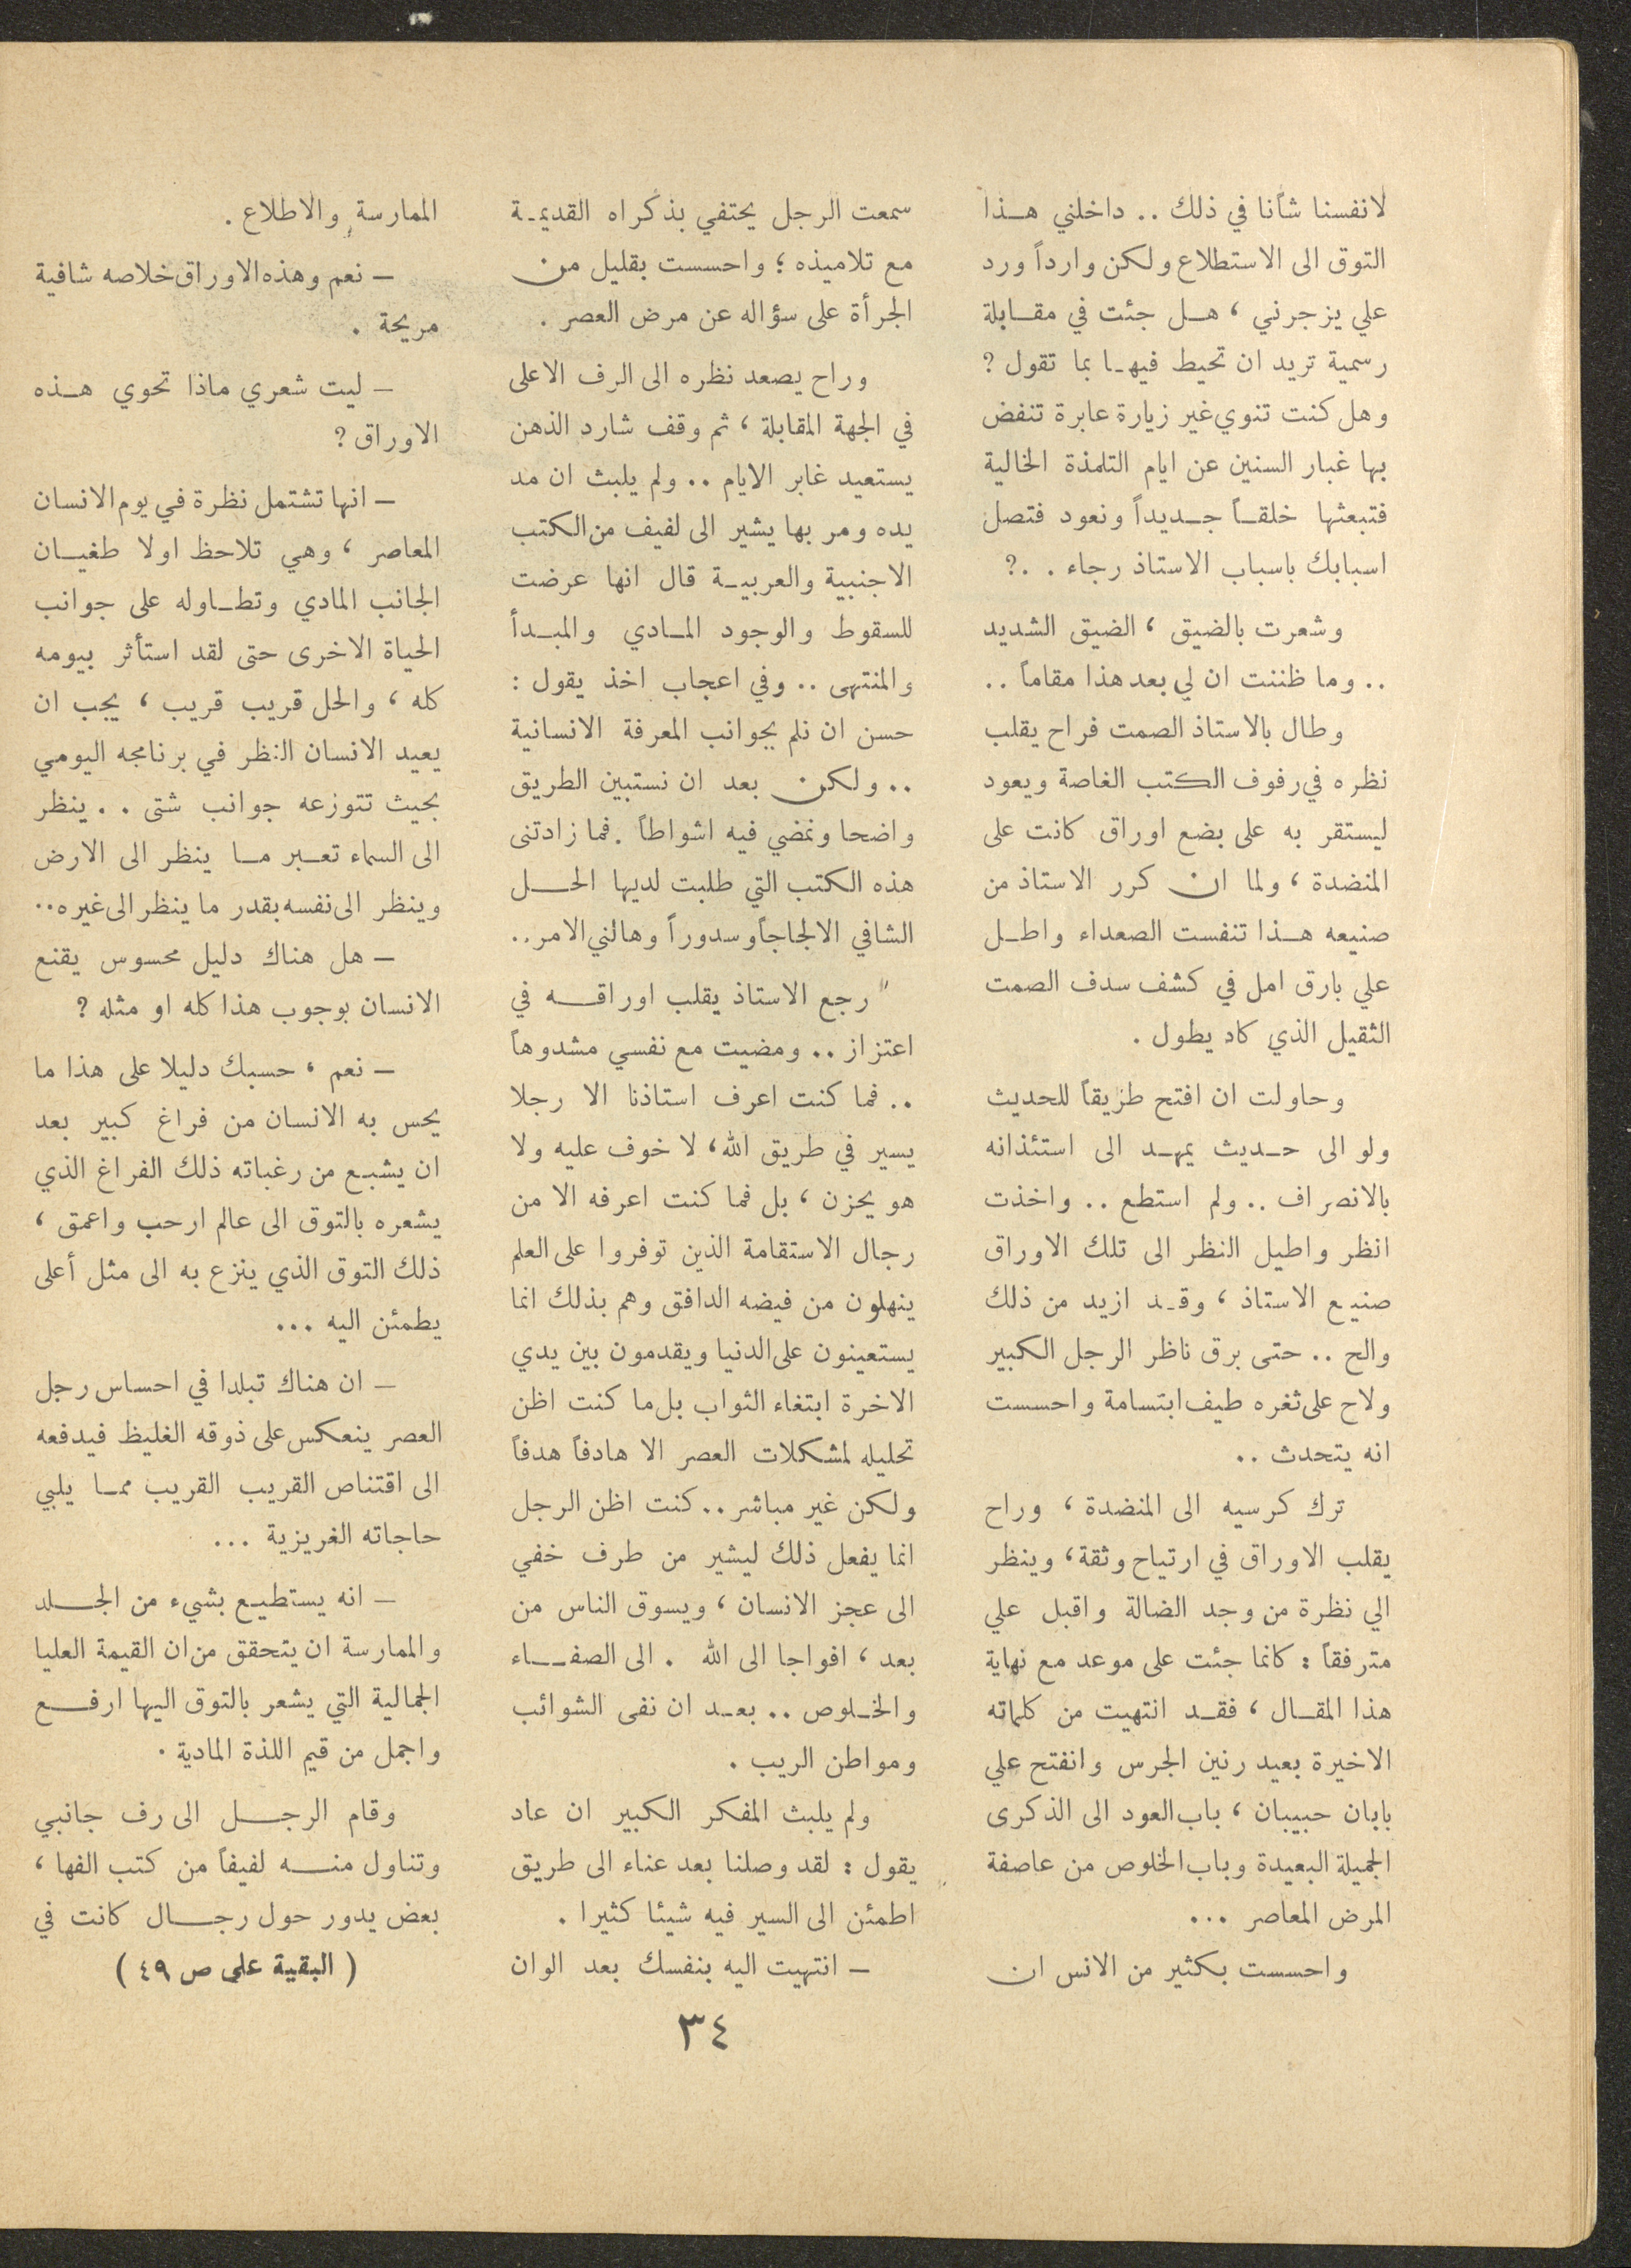 لانفسنا شأنا في ذلك .. داخلني هذا
التوق الى الاستطلاع ولكن وارداً ورد
علي يزجرني ، هل جئت في مقابلة
رسمية تريد ان تحيط فيها بما تقول ؟
وهل كنت تنوي غير زيارة عابرة تنفض
بها غبار السنين عن ايام التلمذة الخالية
فتبعثها خلقاً جديداً ونعود فتصل
اسبابك باسباب الاستاذ رجاء . .؟
وشعرت بالضيق ، الضيق الشديد
.. وما ظننت ان لي بعد هذا مقاماً ..
وطال بالاستاذ الصمت فراح يقلب
نظره في رفوف الكتب الغاصة ويعود
ليستقر به على بضع اوراق كانت على
المنضدة ، ولما ان كرر الاستاذ من
صنيعه هذا تنفست الصعداء واطل
علي بارق امل في كشف سدف الصمت
الثقيل الذي كاد يطول .
وحاولت ان افتح طزيقاً للحديث
ولو الى حديث يمهد الى استئذانه
بالانصراف .. ولم استطع .. واخذت
انظر واطيل النظر الى تلك الاوراق
صنيع الاستاذ ، وقد ازيد من ذلك
والح .. حتى برق ناظر الرجل الكبير
ولاح على ثغره طيف ابتسامة واحسست
انه يتحدث ..
ترك كرسيه الى المنضدة ، وراح
يقلب الاوراق في ارتياح وثقة ، وينظر
الي نظرة من وجد الضالة واقبل علي
مترفقاً : كانما جئت على موعد مع نهاية
هذا المقال ، فقد انتهيت من كلماته
الاخيرة بعيد رنين الجرس وانفتح علي
بابان حبيبان ، باب العود الى الذكرى
الجميلة البعيدة وباب الخلوص من عاصفة
المرض المعاصر ...
واحسست بكثير من الانس ان
سمعت الرجل يحتفي بذكراه القديمة
مع تلاميذه ؛ واحسست بقليل من
الجرأة على سؤاله عن مرض العصر .
وراح يصعد نظره الى الرف الاعلى
في الجهة المقابلة ، ثم وقف شارد الذهن
يستعيد غابر الايام .. ولم يلبث ان مد
يده ومر بها يشير الى لفيف من الكتب
الاجنبية والعربية قال انها عرضت
للسقوط والوجود المادي والمبدأ
والمنتهى .. وفي اعجاب اخذ يقول :
حسن ان نلم بجوانب المعرفة الانسانية
.. ولكن بعد ان نستبين الطريق
واضحا ونمضي فيه اشواطاً . فما زادتنى
هذه الكتب التي طلبت لديها الحل
الشافي الا لجاجاً وسدوراً وهالني الامر ..
رجع الاستاذ يقلب اوراقه في
اعتزاز .. ومضيت مع نفسي مشدوهاً
.. فما كنت اعرف استاذنا الا رجلا
يسير في طريق الله ، لا خوف عليه ولا
هو يحزن ، بل فما كنت اعرفه الا من
رجال الاستقامة الذين توفروا على العلم
ينهلون من فيضه الدافق وهم بذلك انما
يستعينون على الدنيا ويقدمون بين يدي
الاخرة ابتغاء الثواب بل ما كنت اظن
تحليله لمشكلات العصر الا هادفاً هدفاً
ولكن غير مباشر .. كنت اظن الرجل
انما يفعل ذلك ليشير من طرف خفي
الى عجز الانسان ، ويسوق الناس من
بعد ، افواجا الى الله . الى الصفاء
والخلوص .. بعد ان نفى الشوائب
ومواطن الريب .
ولم يلبث المفكر الكبير ان عاد
يقول : لقد وصلنا بعد عناء الى طريق
اطمئن الى السير فيه شيئا كثيرا .
– انتهيت اليه بنفسك بعد الوان
الممارسة والاطلاع .
– نعم وهذه الاوراق خلاصه شافية
مريحة .
– ليت شعري ماذا تحوي هذه
الاوراق ؟
– انها تشتمل نظرة في يوم الانسان
المعاصر ، وهي تلاحظ اولا طغيان
الجانب المادي وتطاوله على جوانب
الحياة الاخرى حتى لقد استأثر بيومه
كله ، والحل قريب قريب ، يجب ان
يعيد الانسان النظر في برنامجه اليومي
بحيث تتوزعه جوانب شتى . . ينظر
الى السماء تعبر ما ينظر الى الارض
وينظر الى نفسه بقدر ما ينظر الى غيره ..
– هل هناك دليل محسوس يقنع
الانسان بوجوب هذا كله او مثله ؟
– نعم ، حسبك دليلا على هذا ما
يحس به الانسان من فراغ كبير بعد
ان يشبع من رغباته ذلك الفراغ الذي
يشعره بالتوق الى عالم ارحب واعمق ،
ذلك التوق الذي ينزع به الى مثل أعلى
يطمئن اليه ...
– ان هناك تبلدا في احساس رجل
العصر ينعكس على ذوقه الغليظ فيدفعه
الى اقتناص القريب القريب مما يلبي
حاجاته الغريزية ...
– انه يستطيع بشيء من الجلد
والممارسة ان يتحقق من ان القيمة العليا
الجمالية التي يشعر بالتوق اليها ارفع
واجمل من قيم اللذة المادية .
وقام الرجل الى رف جانبي
وتناول منه لفيفاً من كتب الفها ،
بعض يدور حول رجال كانت في
( البقية على ص ٤٩ )
٣٤